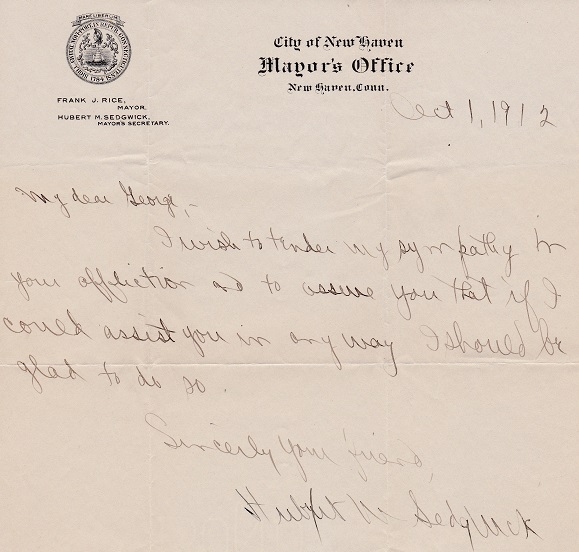 City of New Haven
Mayor's Office
New Haven, Conn.
FRANK J. RICE,
MAYOR.
HUBERT M. SEDGWICK,
MAYOR'S SECRETARY.
Oct 1, 1912
My dear George,—
I wish to tender my sympathy in
your affliction and to assure you that if I
could assist you in any way I should be
glad to do so.
Sincerely your friend,
Hubert M Sedgwick